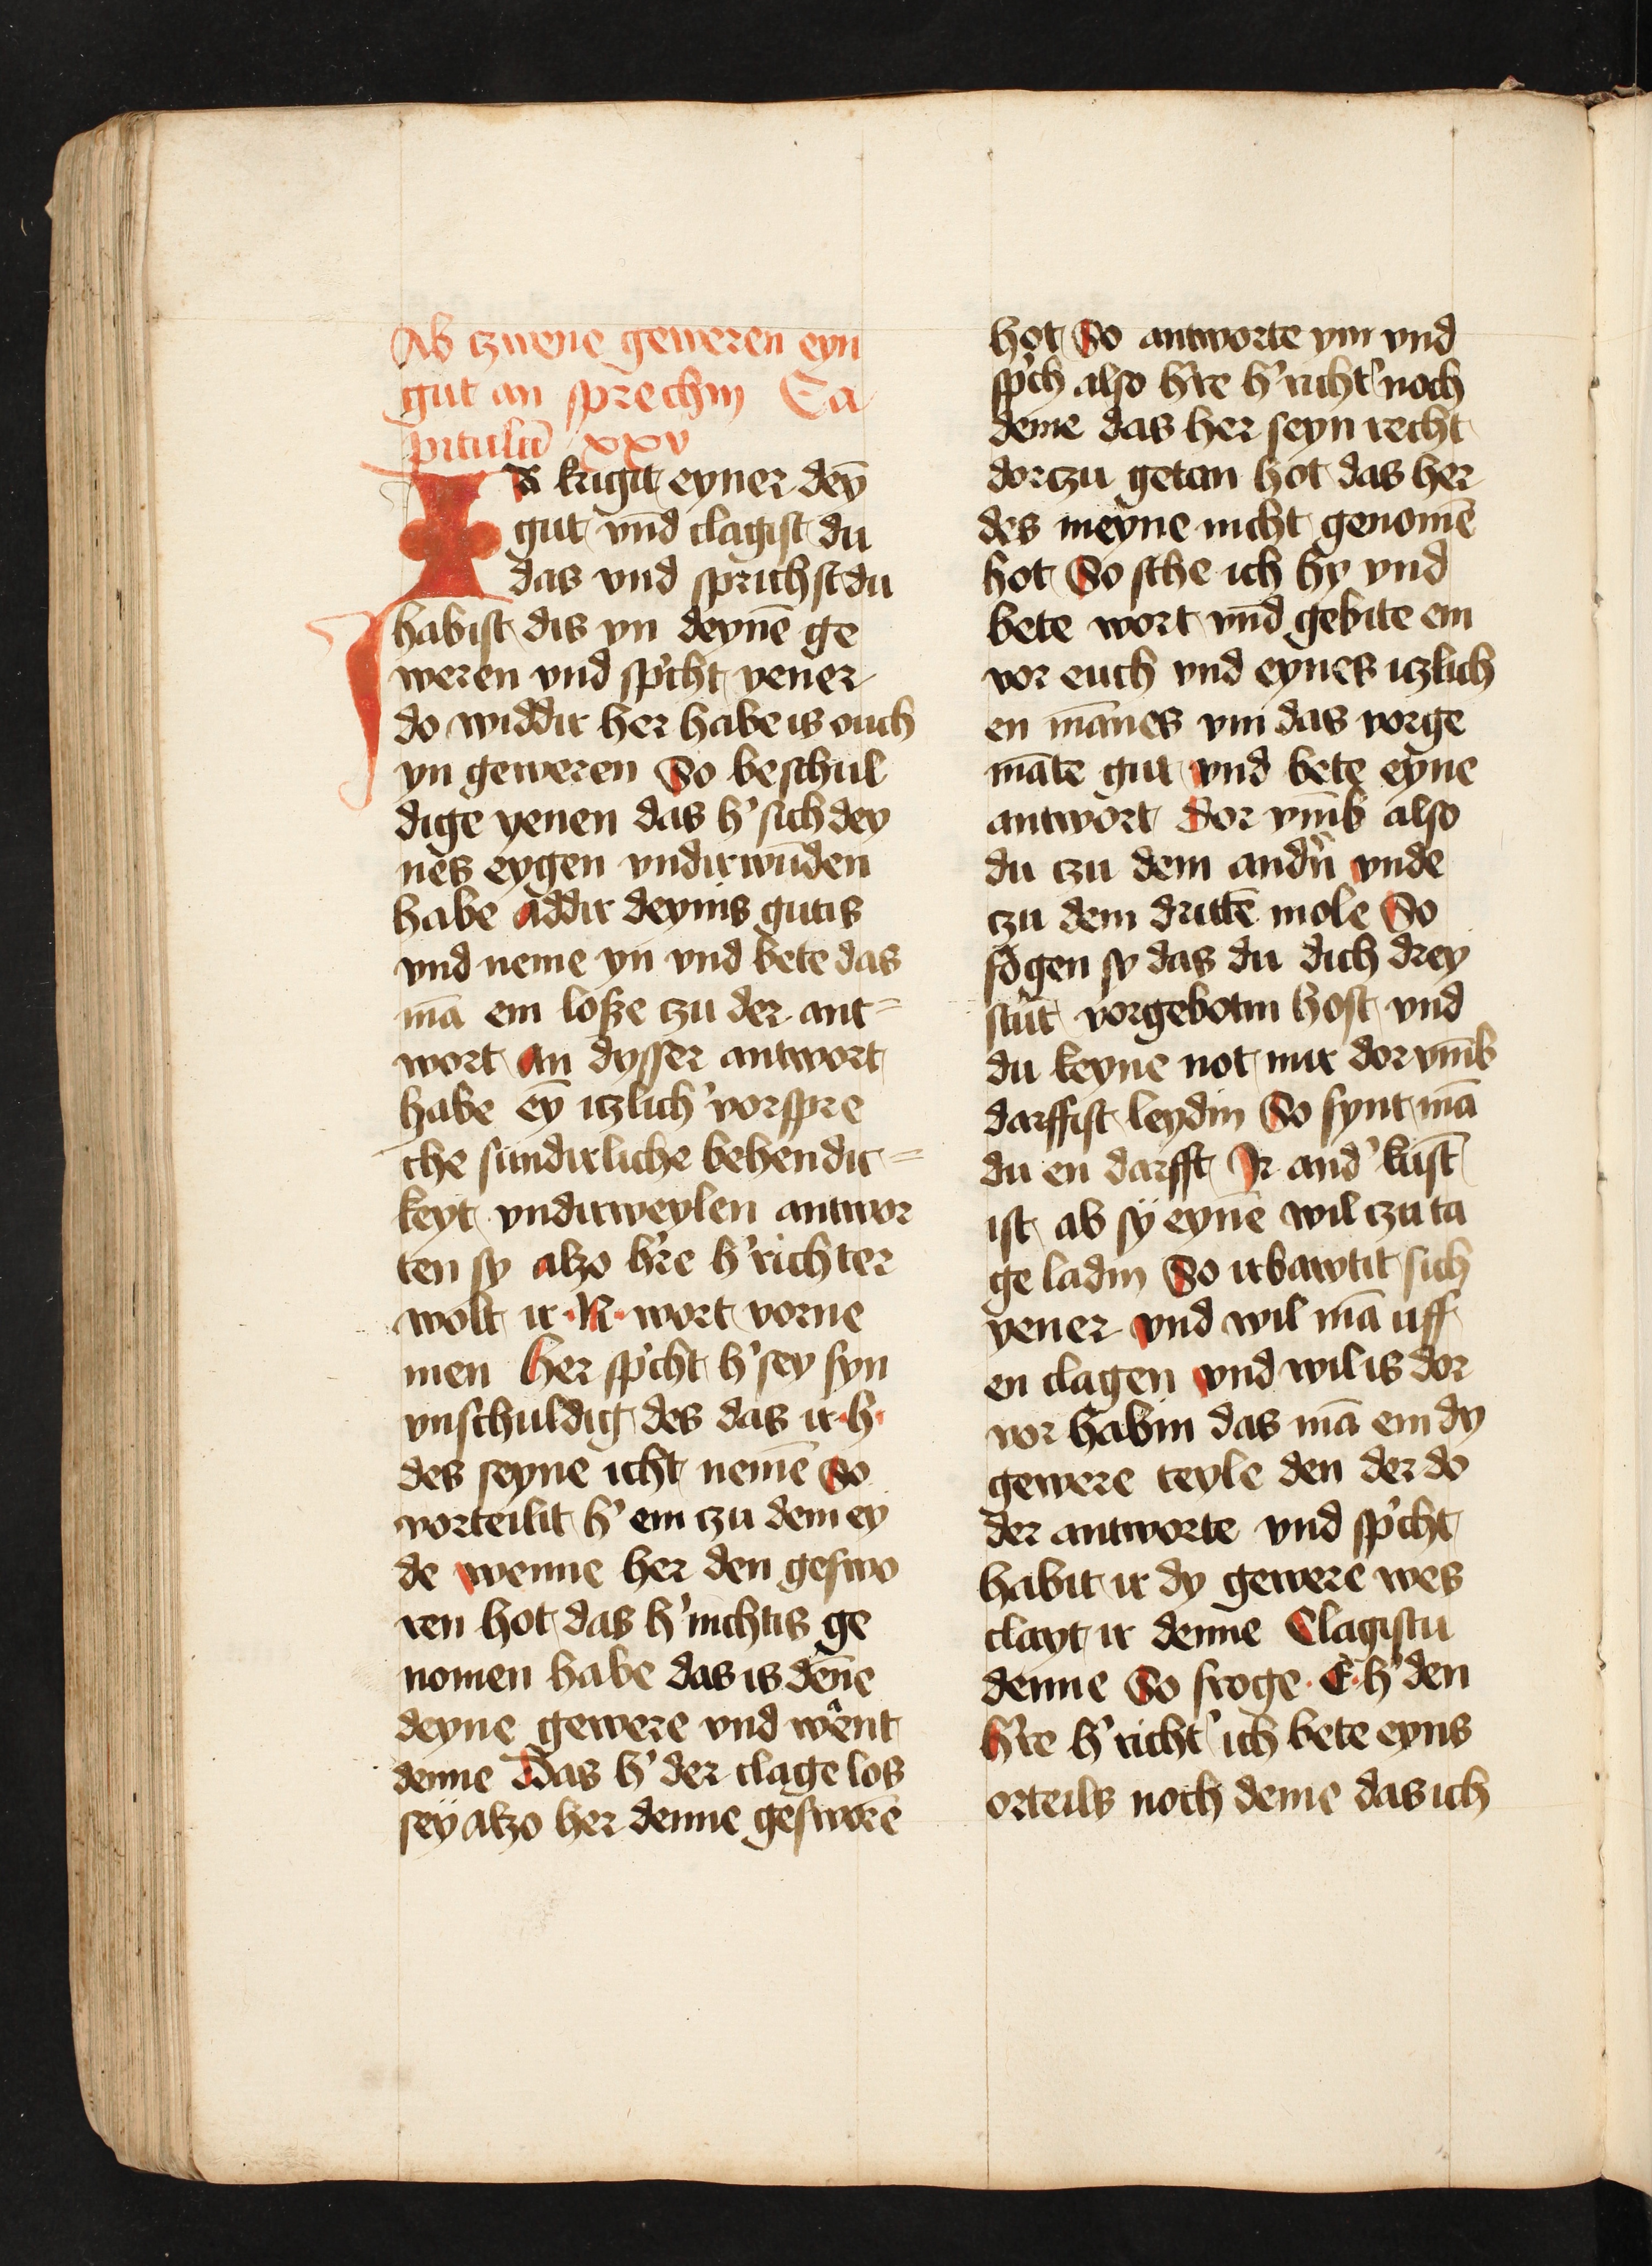 Ab czwene geweren eyn
gut an sprechin Ca
pitulū xxv
Is krigit eyner dey̅
gut vn̄d clagist du
das vnd sprichst du
habist dis yn deynē ge
weren vnd sp'cht yener
do widdir her habe is ouch
yn geweren So beschul
dige yenen das h' sich dey
nes eygen vndirwūden
habe addir deynis gutis
vnd neme yn vnd bete das
mā em losze czu der ant=
wort An dysser antwort
habe ey̅ iczlich' vorspre
che sundirliche behendic=
keyt vndirweylen antwor
ten sy alzo h're h' richter
wolt ir ·N· wort vorne
men her sp'cht h' sey syn
vnschuldig des das ir ·h·
des seyne icht nemē So
vorteilit h' em czu dem ey
de wenne her den geswo
ren hot das h' nichtis ge
nomen habe das is dēne
deyne gewere vnd wênt
denne Das h' der clage los
sey alzo her denne gesworē
hot So antworte ym vnd
sp'ch also h're h' richt' noch
deme das her seyn recht
dorczu getan hot das her
des meyne nicht genomē
hot So sthe ich hy vnd
bete wort vn̄d gebite em
vor euch vnd eynes iczlich
en mānes vm das vorge
māte gut vnd bete eyne
antwort Dor vm̄b also
du czu dem and'n vnde
czu dem drittē mole So
sogen sy das du dich drey
stūt vorgebotin host vnd
du keyne not mir dor vm̄b
darffist leydin So synt mā
du en darfft Ir and' kūst
ist ab sy eynē wil czu ta
ge ladin So irbawtit sich
yener vnd wil mā uff
en clagen vnd wil is dor
vor habin das mā em dy
gewere teyle den der do
der antworte vnd sp'cht
habit ir dy gewere wes
clayt ir denne Clagistu
denne So froge ·E· h' den
h're h' richt' ich bete eyns
orteils noch deme das ich